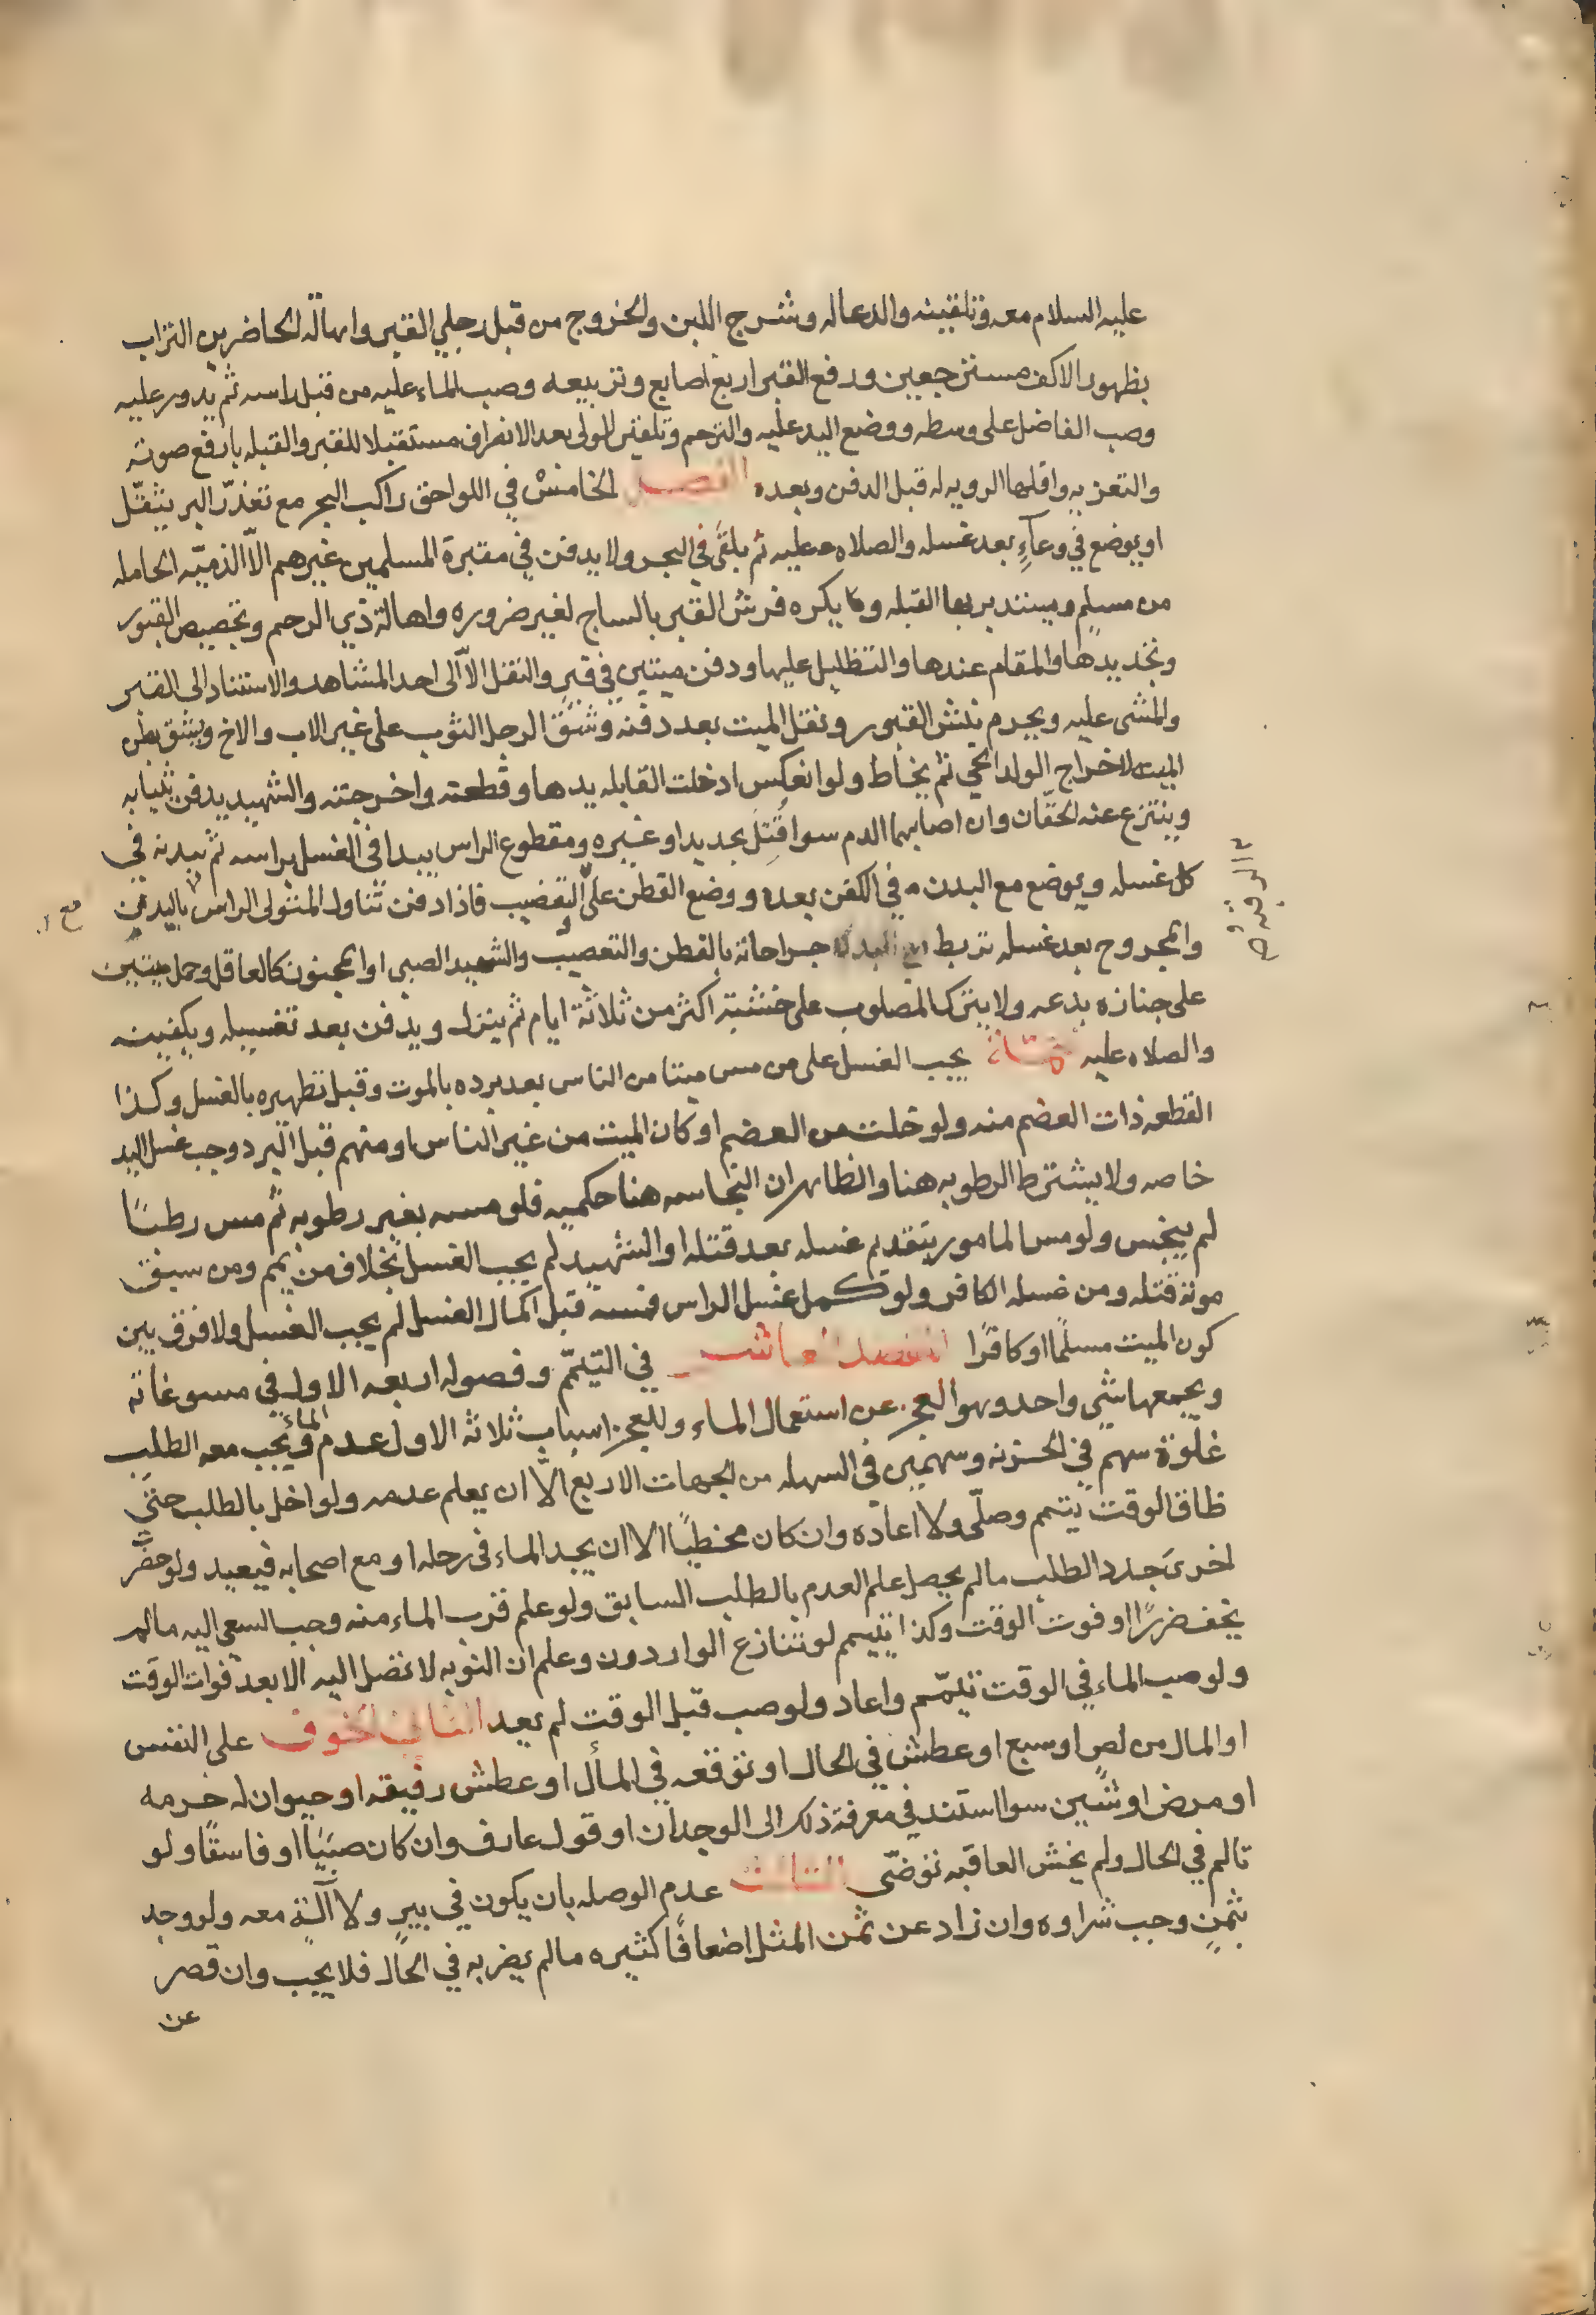 عليه السلام معه وتلقينه والدعاله وشرج اللبن والخروج من قبل رجلي القبر واهالة الحاضرين التراب
بظهور الاكف مسترجعين ورفع القبر اربع اصابع وتربيعه وصب الماء عليه من قبل راسه ثم يدور عليه
وصب الفاضل على وسطه ووضع اليد عليه والترحم وتلقين الولى بعد الانصراف مستقبلا للقبر والقبله بارفع صوته
والتعزيه واقلها الرويه له قبل الدفن وبعده الفصل الخامس في اللواحق راكب البحر مع تعذّر البر يثقّل
او يوضع في وعآءٍ بعد غسله والصلاه عليه ثم يلقى في البحر ولا يدفن في مقبرة المسلمين غيرهم الّا الذميّه الحامله
من مسلم ويستدبر بها القبله ويكره فرش القبر بالساج لغير ضروره واهالة ذي الرحم وتجصيص القبور
وتجديدها والمقام عندها والتظليل عليها ودفن ميتين في قبرٍ والنقل الّا الى احد المشاهد والاستناد الى القبر
والمشى عليه ويحرم نبش القبور ونقل الميت بعد دفنه وشقّ الرجل الثوب على غير الاب والاخ ويشق بطن
الميت لاخراج الولد الحي ثم يخاط ولو انعكس ادخلت القابله يدها وقطعته واخرجته والشهيد يدفن بثيابه
وينتزع عنه الخفّان وان اصابهما الدم سوا قُتِلَ بحديد او غيره ومقطوع الراس يبدا فى الغسل براسه ثم ببدنه في
كل غسله ويوضع مع البدن في الكفن بعده ووضع القطن على التعضيب فاذا دفن تناول المتولى الراس باليدين
والمجروح بعد غسله تربط جراحاته بالقطن والتعصيب والشهيد الصبى او المجنون كالعاقل وحمل ميتين
على جنازه بدعه ولا يترك المصلوب على خشبته اكثر من ثلاثة ايام ثم ينزل ويدفن بعد تغسيله وتكفينه
والصلاه عليه تتمّة يجب الغسل على من مس ميتا من الناس بعد برده بالموت وقبل تطهيره بالغسل وكذا
القطعه ذات العضم منه ولو خلت من العضم او كان الميت من غير الناس او منهم قبل البرد وجب غسل اليد
خاصه ولا يشترط الرطوبه هنا والظاهر ان النجاسه هنا حكميه فلو مسه بغير رطوبه ثم مس رطبًا
لم ينجس ولو مس المامور بتقديم غسله بعد قتله او الشهيد لم يجب الغسل بخلاف من يمم ومن سبق
موته قتله ومن غسله الكافر ولو كمل غسل الراس فمسه قبل اكمال الغسل لم يجب الغسل ولا فرق بين
كون الميت مسلمًا او كافرًا المقصد العاشر في التيمّم وفصوله اربعه الاول في مسوغاته
ويجمعها شي واحد وهو العجز عن استعمال الماء وللعجز اسباب ثلاثه الاول عدم الماء ويجب معه الطلب
غلوة سهم في الحزنه وسهمين فى السهله من الجهات الاربع الّا ان يعلم عدمه ولو اخل بالطلب حتى
ظاق الوقت يتمم وصلّى ولا اعاده وان كان مخطيًا الا ان يجد الماء فى رحله او مع اصحابه فيعيد ولو حضرت
اخرى جدد الطلب مالم يحصل علم العدم بالطلب السابق ولو علم قرب الماء منه وجب السعي اليه مالم
يخف ضررًا او فوت الوقت وكذا تيمم لو تنازع الواردون وعلم ان النوبه لا تصل اليه الا بعد فوات الوقت
ولو صب الماء في الوقت تيمّم واعاد ولو صب قبل الوقت لم يعد الثاني الخوف على النفس
او المال من لصٍ او سبع او عطش في الحال او توقعه في المآل او عطش رفيقه او حيوان له حرمه
او مرض او شين سوا استند في معرفة ذلك الى الوجدان او قول عارف وان كان صبيًا او فاسقًا ولو
تالم في الحال ولم يخش العاقبه توضّى الثالث عدم الوصله بان يكون في بيرٍ ولا آلة معه ولو وجد
بثمنٍ وجب شراوه وان زاد عن ثمن المثل اضعافًا كثيره مالم يضر به في الحال فلا يجب وان قصر
عن